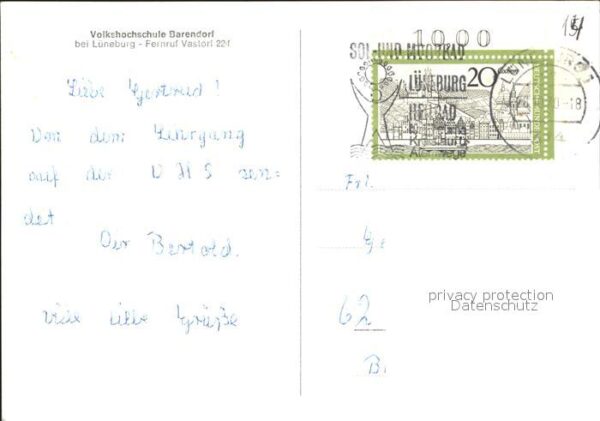 Volkshochschule Barendorf
bei Lüneburg - Fernruf Vastorf 221
Liebe Gertrud!
Von dem Lehrgang
auf der VHS sen=
det
Dir Bertold.
viele liebe Grüße
1000
SOL- UND MOORBAD
LÜNEBURG
20
Frl.
Ge
62
B.
privacy protection
Datenschutz